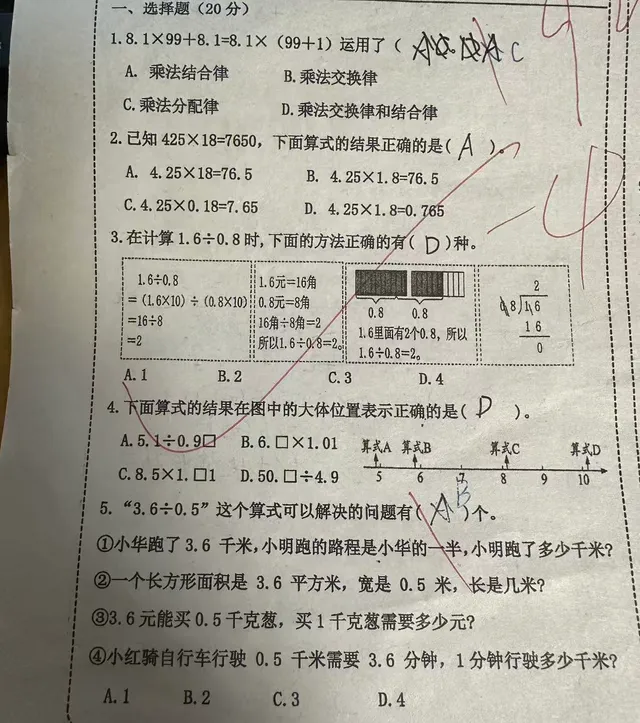 一、选择题(20分)
1.8.1×99+8.1=8.1×(99+1)运用了( C
A. 乘法结合律 B.乘法交换律
C.乘法分配律 D.乘法交换律和结合律
2.已知425×18=7650,下面算式的结果正确的是( A )。
A. 4.25×18=76.5 B. 4.25×1.8=76.5
C.4.25×0.18=7.65 D. 4.25×1.8=0.765
3.在计算1.6÷0.8时,下面的方法正确的有( D )种。
1.6÷0.8
=(1.6×10)÷(0.8×10)
=16÷8
=2
1.6元=16角
0.8元=8角
16角÷8角=2
所以1.6÷0.8=2。
0.8 0.8
1.6里面有2个0.8,所以
1.6÷0.8=2。
2
0.8)1.6
1 6
0
A.1 B.2 C.3 D.4
4.下面算式的结果在图中的大体位置表示正确的是( D )。
A.5.1÷0.9□ B.6.□×1.01
C.8.5×1.□1 D.50.□÷4.9
算式A 算式B 算式C 算式D
5 6 7 8 9 10
5.“3.6÷0.5”这个算式可以解决的问题有( B )个。
①小华跑了3.6千米,小明跑的路程是小华的一半,小明跑了多少千米?
②一个长方形面积是3.6平方米,宽是0.5米,长是几米?
③3.6元能买0.5千克葱,买1千克葱需要多少元?
④小红骑自行车行驶0.5千米需要3.6分钟,1分钟行驶多少千米?
A.1 B.2 C.3 D.4
-4